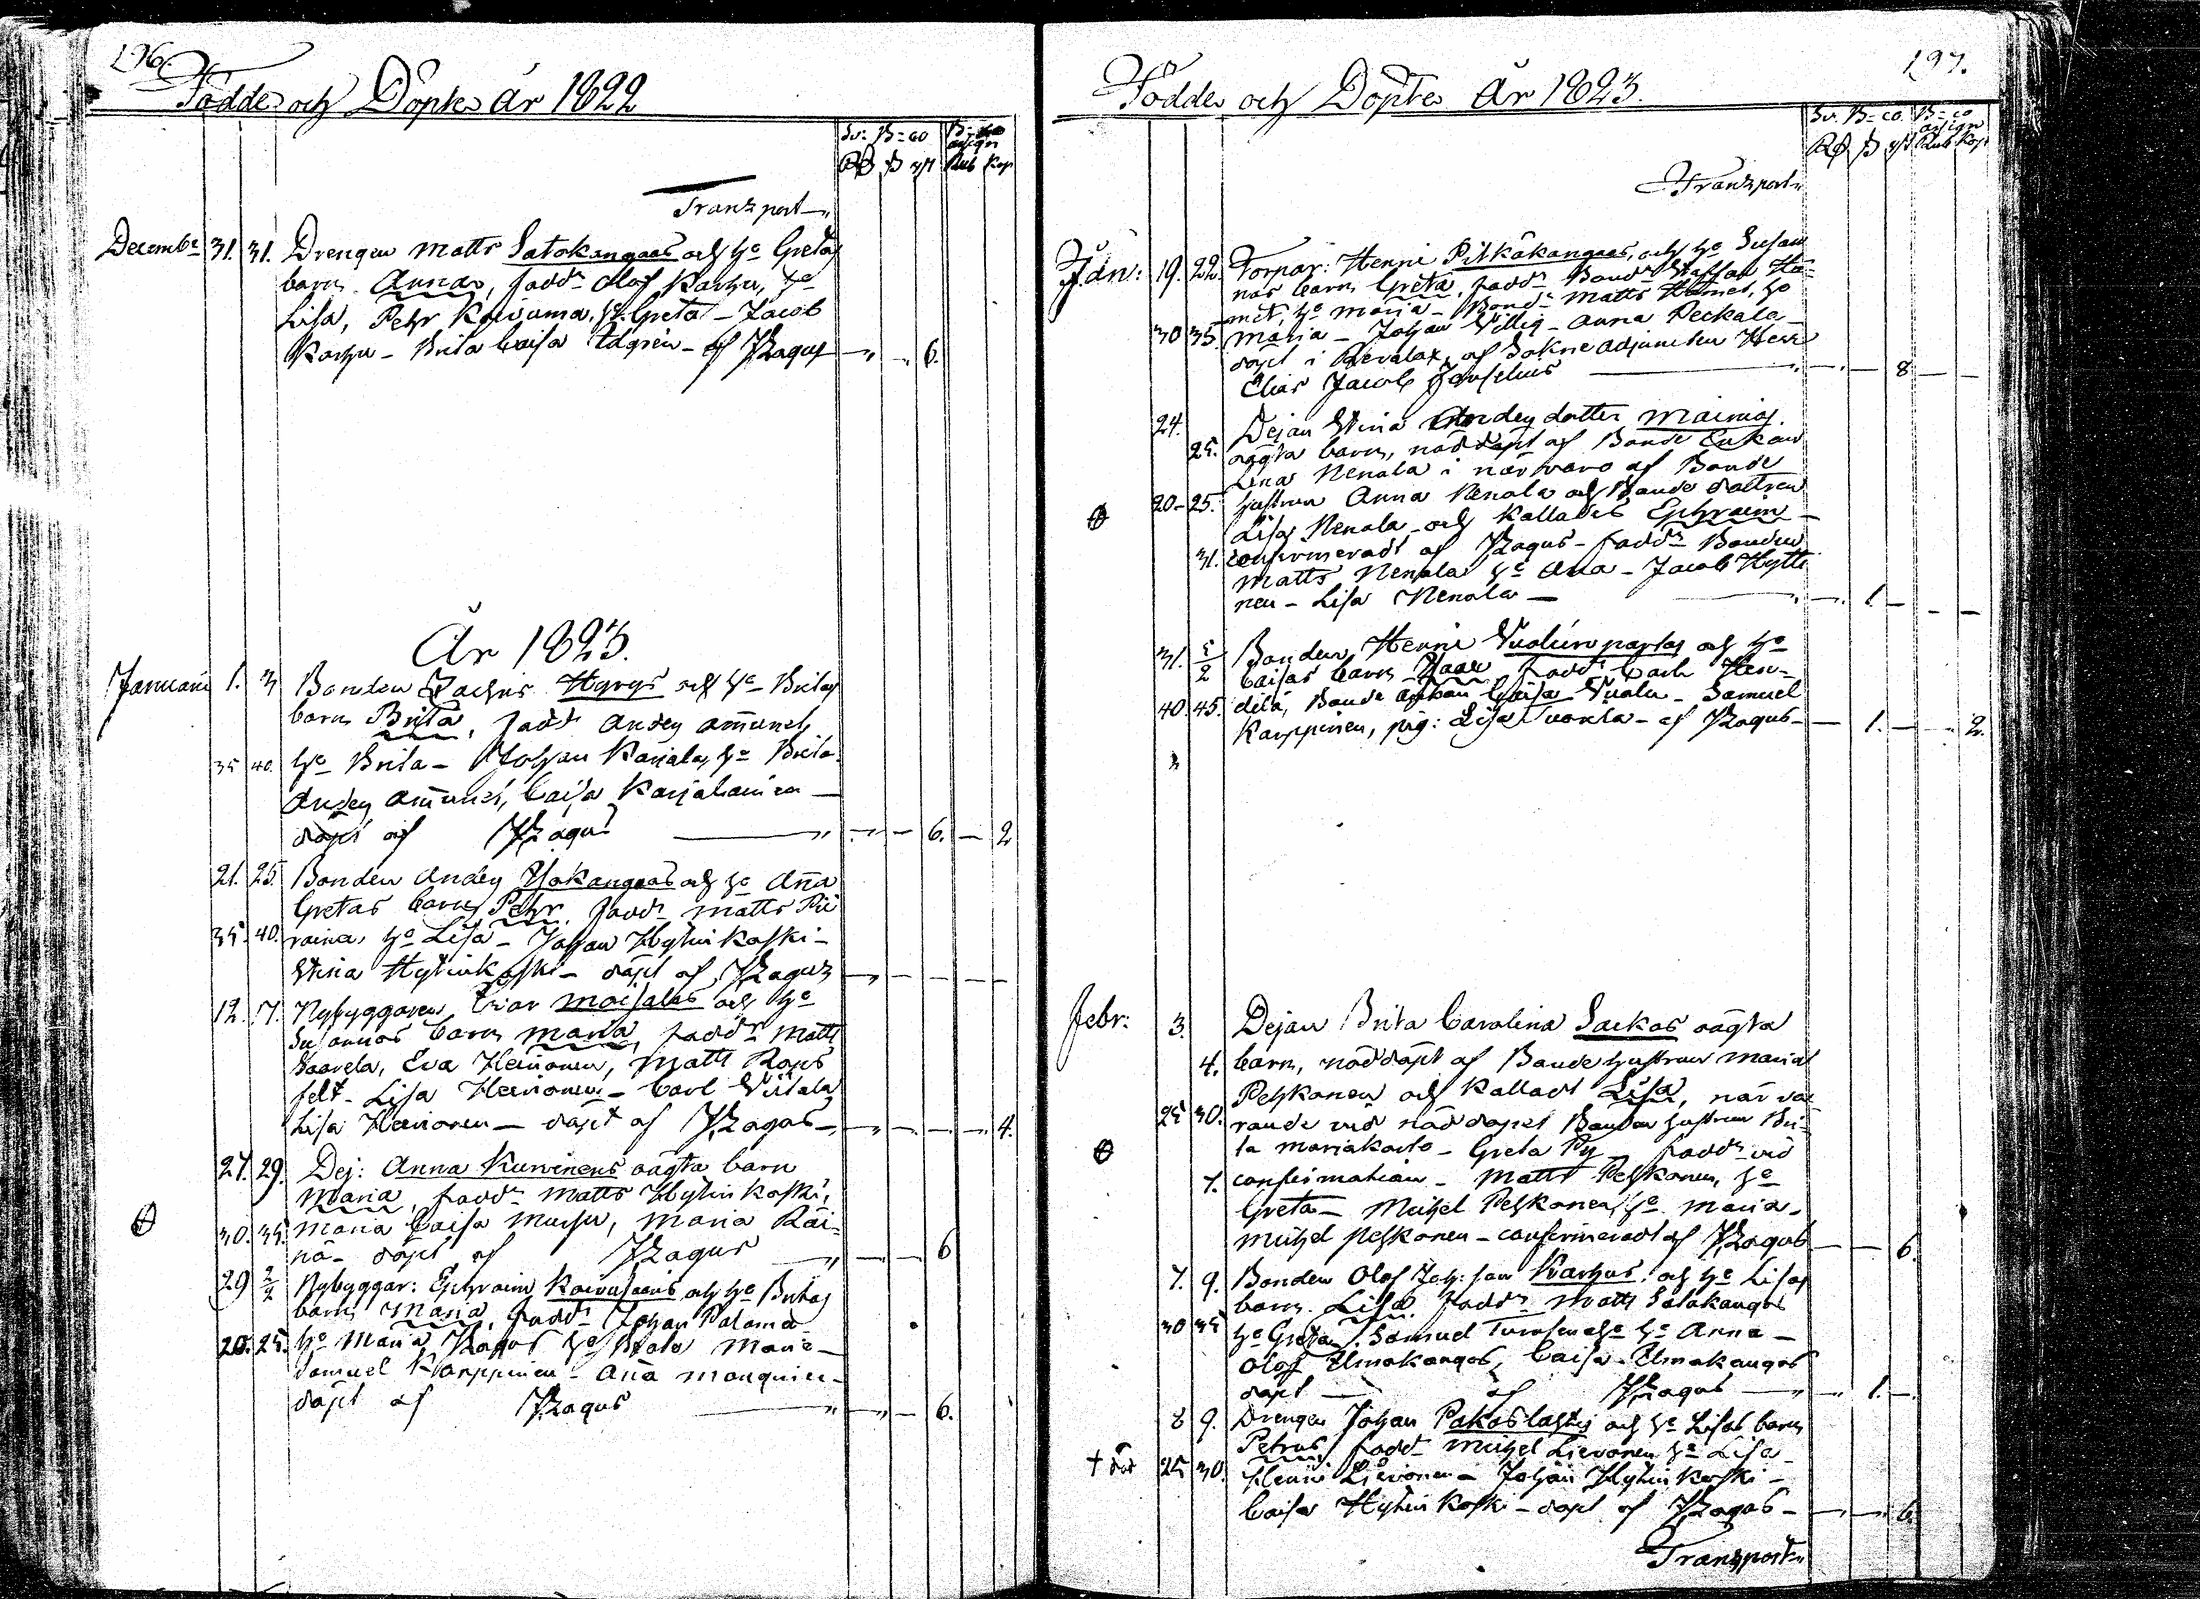 196.
Födde och Döpte år 1822
Sv: B=co B=co assign
Rd ß rst Rub kop
Transport
Decembr 31. 31. Drengen Matts Satokangas och hu Gretas
barn Anna, fadd: Olof Karhu, hu
Lisa, Pehr Koivuma, hu Greta - Jacob
Karhu - Brita Caisa - af Zagus 6.
År 1823.
Januarii 1. 3 Bonden Zachris Hyrys och hu Britas
barn Brita, fadd: Anders
35 40. hu Brita - Johan Karjala, hu Brita
Anders Caisa Karjalainen
döpt af Zagus 6. 2
21. 25. Bonden Anders Yokangas och hu Anna
Gretas barn Pehr, fadd: Matts Pii
35. 40. raina, hu Lisa - Johan Hyttinkoski -
Stina Hyttinkoski - döpt af Zagus
12. 17. Nybyggaren Ivar Moisalas och hu
Susannas barn Maria, fadd: Matts
Saarela, Eva Heinonen, Matts Rops
felt - Lisa Heinonen - Carl Viitala
Lisa Heinonen - döpt af Zagus 4.
27. 29. Dej: Anna Kurvinens oägta barn
Maria, fadd: Matts Hyttinkoski,
30. 35. Maria Caisa Maria Räi-
nä - döpt af Zagus 6
29 2/2 Nybyggar: Ephraim Koivusaaris och hu Britas
barn Maria, fadd: Johan Palama
20. 25. hu Maria hu Marie -
Samuel Karppinen - Anna
döpt af Zagus 6.
197.
Födde och Döpte År 1823.
Sv. B=co. B=co assign
Rd ß rst Rub kop
Transport
Jan: 19. 22 Torpar: Henric Pitkäkangas, och hu Susan
nas barn Greta, fadd: Bond: Staffan Ha-
met, hu Maria - Bond: Matts Hamet, hu
30 35. Maria - Johan Villig - Anna Peckala -
döpt i Revolax, af Sokne adjuncten Herr
Elias Jacob 8
24. Dejan Stina Anders dotter Mainios
25. oägta barn, nöddöpt af Bonde Enkan
Lena Nenola i närvaro af Bonde
20 - 25. hustrun Anna Nenola och Bonde dottren
Lisa Nenola - och kallades Ephraim -
31. confirmeradt af Zagus - fadd: Bonden
Matts Nenola hu Ana - Jacob Hytti
nen - Lisa Nenola - 1.
31. 5/2 Bonden Henric och hu
Caisas barn Isaac, fadd: Carl Hen-
40. 45. dilä, Bonde Enkan Caisa - Samuel
Karppinen, pig: Lisa - af Zagus - 1. 2.
Febr: 3. Dejan Brita Carolina Sackas oägta
4. barn, nöddöpt af Bonde hustrun Maria
Peskonen och kalladt Lisa, när va
25 30. rande vid nöddopet Bonden hustrun Bri-
ta Marjakarto - Greta Py - fadd: vid
7. confirmation - Matts Peskonen, hu
Greta - Michel Peskonen, hu Maria -
Michel Peskonen - confirmeradt af Zagus 6
7. 9. Bonden Olof Joh: son Karhus och hu Lisas
barn Lisa, fadd: Matts Satokangas
30 35 hu Greta, Samuel hu Anna -
Olof Elmakangas, Caisa Elmakangas
döpt af Zagus 1.
8 9. Drengen Johan Pakaslahti och hu Lisas barn
Petrus, fadd: Michel Lievonen hu Lisa -
† död 25 30. Henric Lievonen - Johan Hyttinkoski -
Caisa Hyttinkoski - döpt af Zagus - 6.
Transport